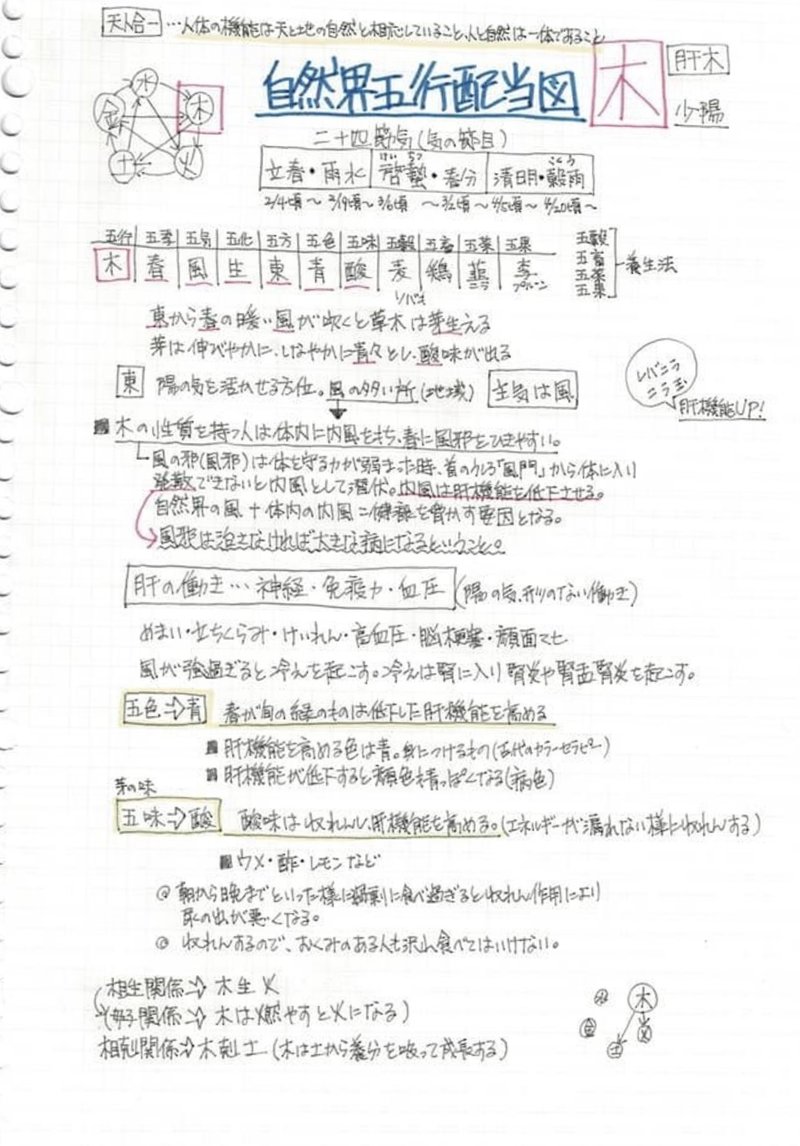 天人合一 …人体の機能は天と地の自然と相応していること、人と自然は一体であること
水
金 木
土 火
自然界五行配当図
木 肝木
少陽
二十四節気(気の節目)
立春・雨水 啓蟄・春分 清明・穀雨
けい ちつ こくう
2/4頃〜 2/19頃〜 3/6頃 〜 〜4/5頃〜 4/20頃〜
五行 五季 五気 五化 五方 五色 五味 五穀 五畜 五菜 五果
木 春 風 生 東 青 酸 麦 鶏 韮 李
ニラ プルーン
五穀
五畜
五菜
五果
養生法
東から春の暖い風が吹くと草木は芽生える
芽は伸びやかに、しなやかに青々とし、酸味が出る
東 陽の気を活かせる方位。風の多い所(地域) 主気は風
レバニラ
ニラ玉
肝機能UP!
木の性質を持つ人は体内に内風を持ち、春に風邪をひきやすい。
風の邪(風邪)は体を守る力が弱まった時、首のうしろ「風門」から体に入り
発散できないと内風として潜伏。内風は肝機能を低下させる。
自然界の風+体内の内風=健康を脅かす要因となる。
風邪は治さなければ大きな病になるということ。
肝の働き…神経・免疫力・血圧 (陽の気、形のない働き)
めまい・立ちくらみ・けいれん・高血圧・脳梗塞・顔面マヒ
風が強過ぎると冷えを起こす。冷えは腎に入り腎炎や腎盂腎炎を起こす。
五色⇒青 春が旬の緑のものは低下した肝機能を高める
肝機能を高める色は青。身につけるもの(古代のカラーセラピー)
肝機能が低下すると顔色も青っぽくなる(病色)
芽の味
五味⇒酸 酸味は収れんし、肝機能を高める。(エネルギーが漏れない様に収れんする)
ウメ・酢・レモンなど
朝から晩までといった様に過剰に食べ過ぎると収れん作用により
尿の出が悪くなる。
収れんするので、おくみのある人も沢山食べてはいけない。
(相生関係⇒木生火
母子関係⇒木は燃やすと火になる)
相剋関係⇒木剋土(木は土から養分を吸って成長する)
水 木
金 火
土